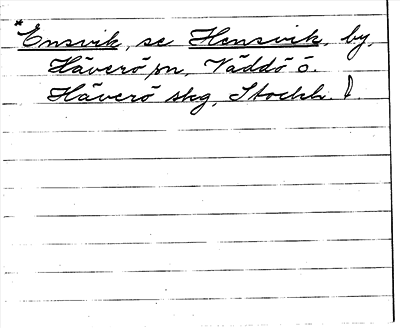 *Ensvik, se Hensvik, by,
Häverö pn, Väddö ö.
Häverö skg, Stockh. l.